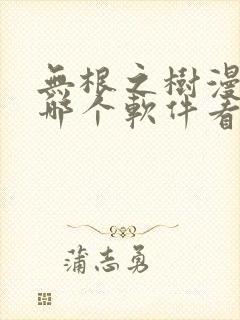 無根之樹漫
哪个軟件看
蒲志勇